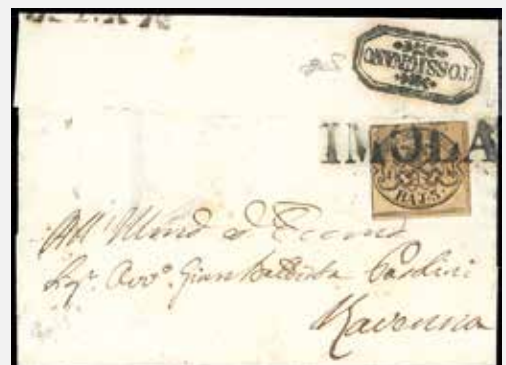 TOSSIGNANO
IMOLA
BAJ. 3.
All' Illmo ed Eccmo
Sigr. Avvo. Gian Battista Paolini
Ravenna